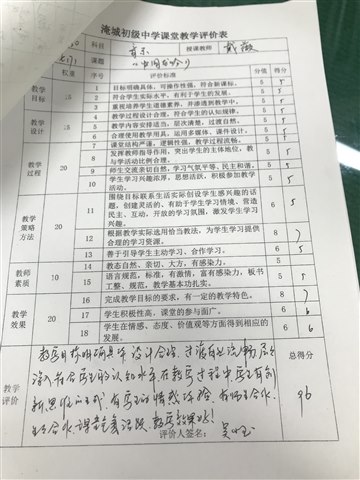 淹城初级中学课堂教学评价表
科目 音乐 授课教师 戴薇
课题
权重 序号 评价标准 分值 得分
教学目标 15
1 目标明确具体,可操作性强,符合新课标。 5 5
2 符合学生实际水平,有利于学生的发展。 5 5
3 重视培养学生道德素养,并渗透到教学中。 5 5
教学设计 15
4 教学过程设计合理,符合学生的认知规律。 5 5
5 教学内容安排适当,层次清楚,过渡自然。 5 5
6 合理使用教学用具,运用多媒体、课件设计。 5 5
教学过程 20
7 课堂结构严谨,逻辑性强,教学过程流畅。 5 5
8 发挥教师指导作用,突出学生的主体地位,教与学活动比例合理。 5 5
9 师生交流亲切自然,学习气氛平等、民主和谐。 5 5
10 学生学习兴趣浓厚,思想活跃,积极参加教学活动。 5 5
教学策略方法 20
11 围绕目标联系生活实际创设学生感兴趣的话题,创建灵活的、有助于学生学习情境、营造民主、互动、开放的学习氛围,激发学生学习兴趣。 6 5
12 根据教学实际选用恰当教法,为学生学习提供合理的学习资源。 8 7
13 善于引导学生主动学习、合作学习。 6 5
教师素质 10
14 教态自然、亲切、大方,有感染力。 5 5
15 语言规范,标准,有激情,富有感染力,板书工整、规范,教学基本功扎实。 5 5
教学效果 20
16 完成教学目标的要求,有一定的教学特色。 8 7
17 学生积极性高,课堂的参与面广。 6 6
18 学生在情感、态度、价值观等方面得到相应的发展。 6 6
教学评价
教学目标明确具体 设计合理,过渡自然流畅,层层
深入,符合学生的认知水平
总得分
96
评价人签名: